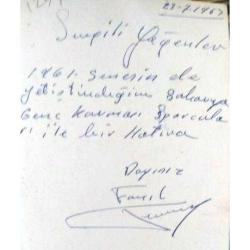 23-7-1967
Sevgili Yeğenler
1961. senesin de
yetiştirdiğim Sakarya
Genç Karması Sporcula
rı ile bir Hatıra
Dayınız